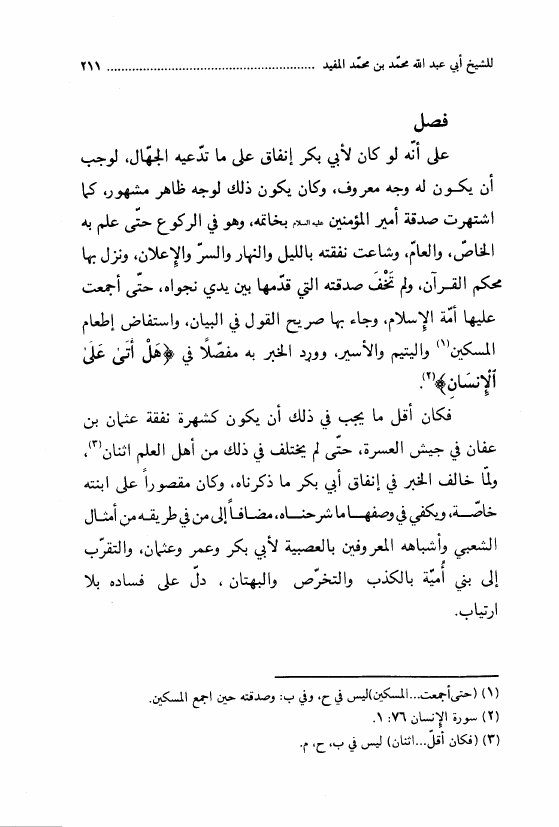 للشيخ أبي عبد الله محمّد بن محمّد المفيد ..................................................... ٢١١
فصل
على أنّه لو كان لأبي بكر إنفاق على ما تدّعيه الجهّال، لوجب
أن يكـون له وجه معروف، وكان يكون ذلك لوجه ظاهر مشهور، كما
اشتهرت صدقة أمير المؤمنين عليه السلام بخاتمه، وهو في الركوع حتّى علم به
الخاصّ، والعامّ، وشاعت نفقته بالليل والنهار والسرّ والإعلان، ونزل بها
محكم القـرآن، ولم تَخْفَ صدقته التي قدّمها بين يدي نجواه، حتّى أجمعت
عليها أمّة الإسلام، وجاء بها صريح القول في البيان، واستفاض إطعام
المسكين(١) واليتيم والأسير، وورد الخبر به مفصّلًا في ﴿هَلْ أَتَىٰ عَلَىٰ
ٱلْإِنسَانِ﴾(٢).
فكان أقل ما يجب في ذلك أن يكون كشهرة نفقة عثمان بن
عفان في جيش العسرة، حتّى لم يختلف في ذلك من أهل العلم اثنان(٣)،
ولمّا خالف الخبر في إنفاق أبي بكر ما ذكرناه، وكان مقصوراً على ابنته
خاصّـة، ويكفي في وصفهـا ما شرحنـاه، مضـافـاً إلى من في طريقـه من أمثال
الشعبي وأشباهه المعروفين بالعصبية لأبي بكر وعمر وعثمان، والتقرّب
إلى بني أُميّة بالكذب والتخرّص والبهتان ، دلّ على فساده بلا
ارتياب.
(١) (حتى أجمعت...المسكين) ليس في ح، وفي ب: وصدقته حين اجمع المسكين.
(٢) سورة الإنسان ٧٦: ١.
(٣) (فكان أقلّ...اثنان) ليس في ب، ح، م.